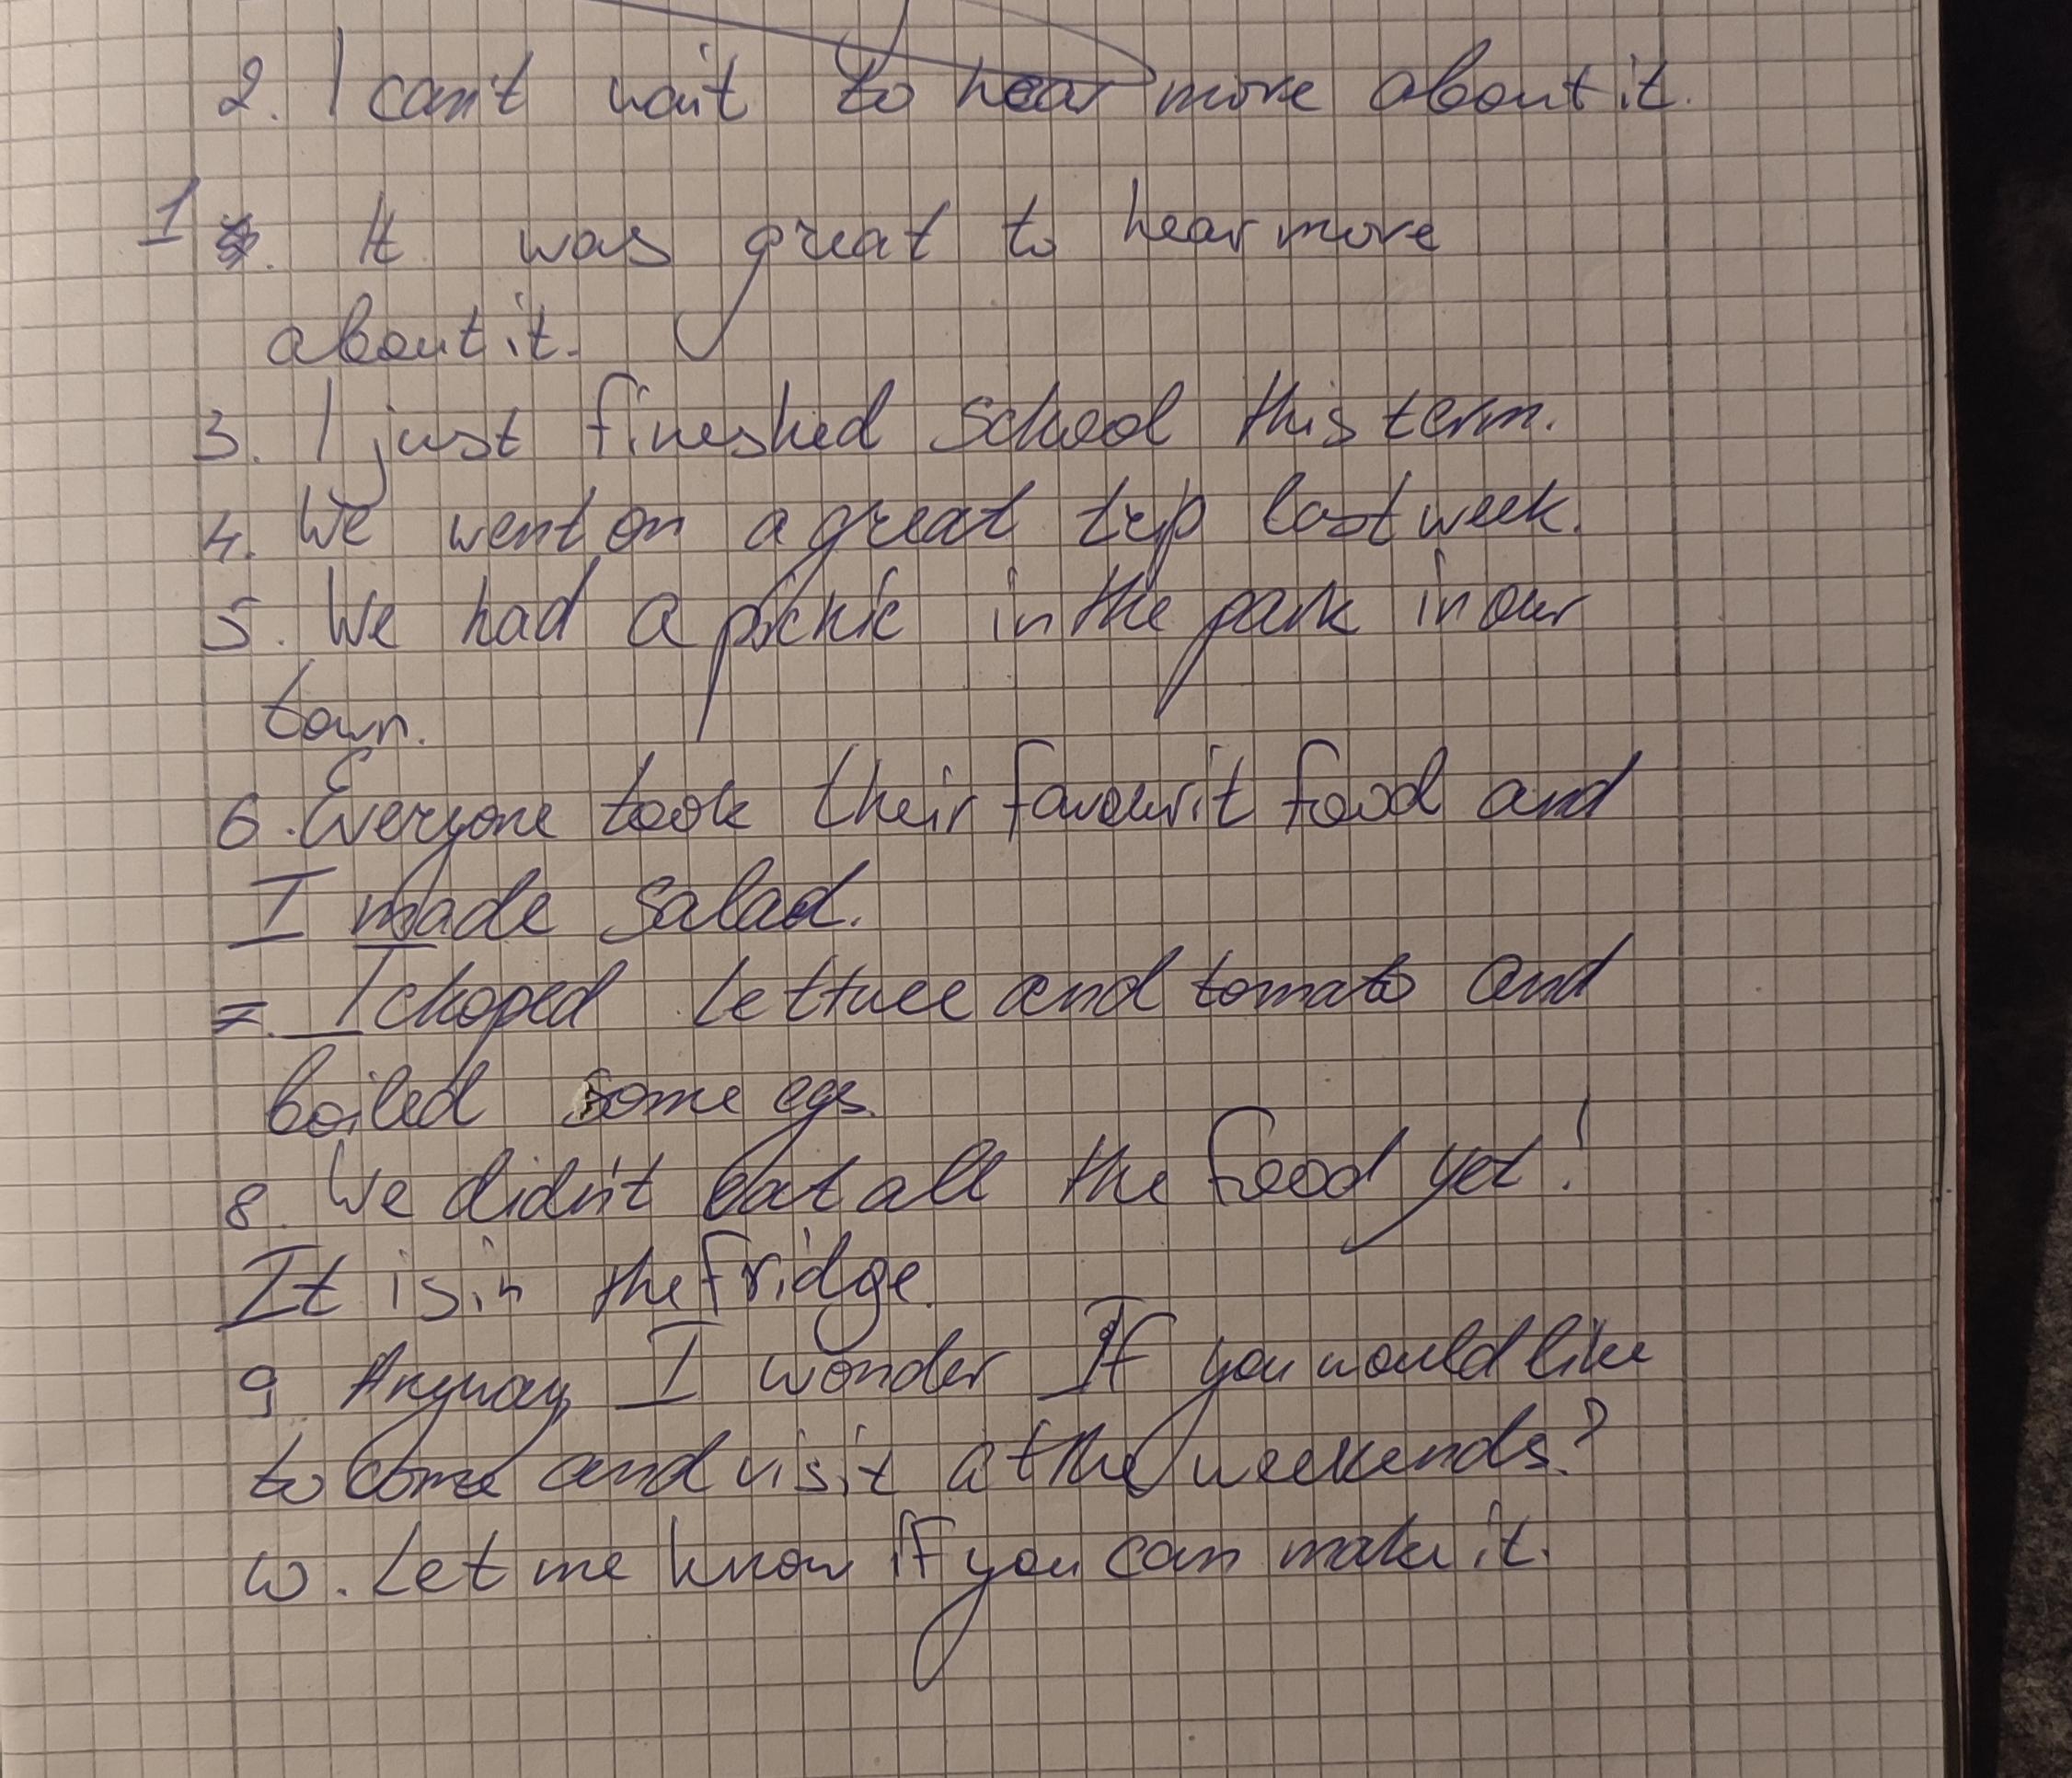 2. I can't wait to hear more about it.
1. It was great to hear more
about it.
3. I just fineshed school this term.
4. We went on a great trip last week.
5. We had a picnic in the park in our
town.
6. Everyone took their favourit food and
I made salad.
7. I choped lettuce and tomato and
boiled some egs.
8. We didn't eat all the food yet!
It is in the fridge.
9 Anyway, I wonder If you would like
to come and visit at the weekends?
10. Let me know if you can make it.